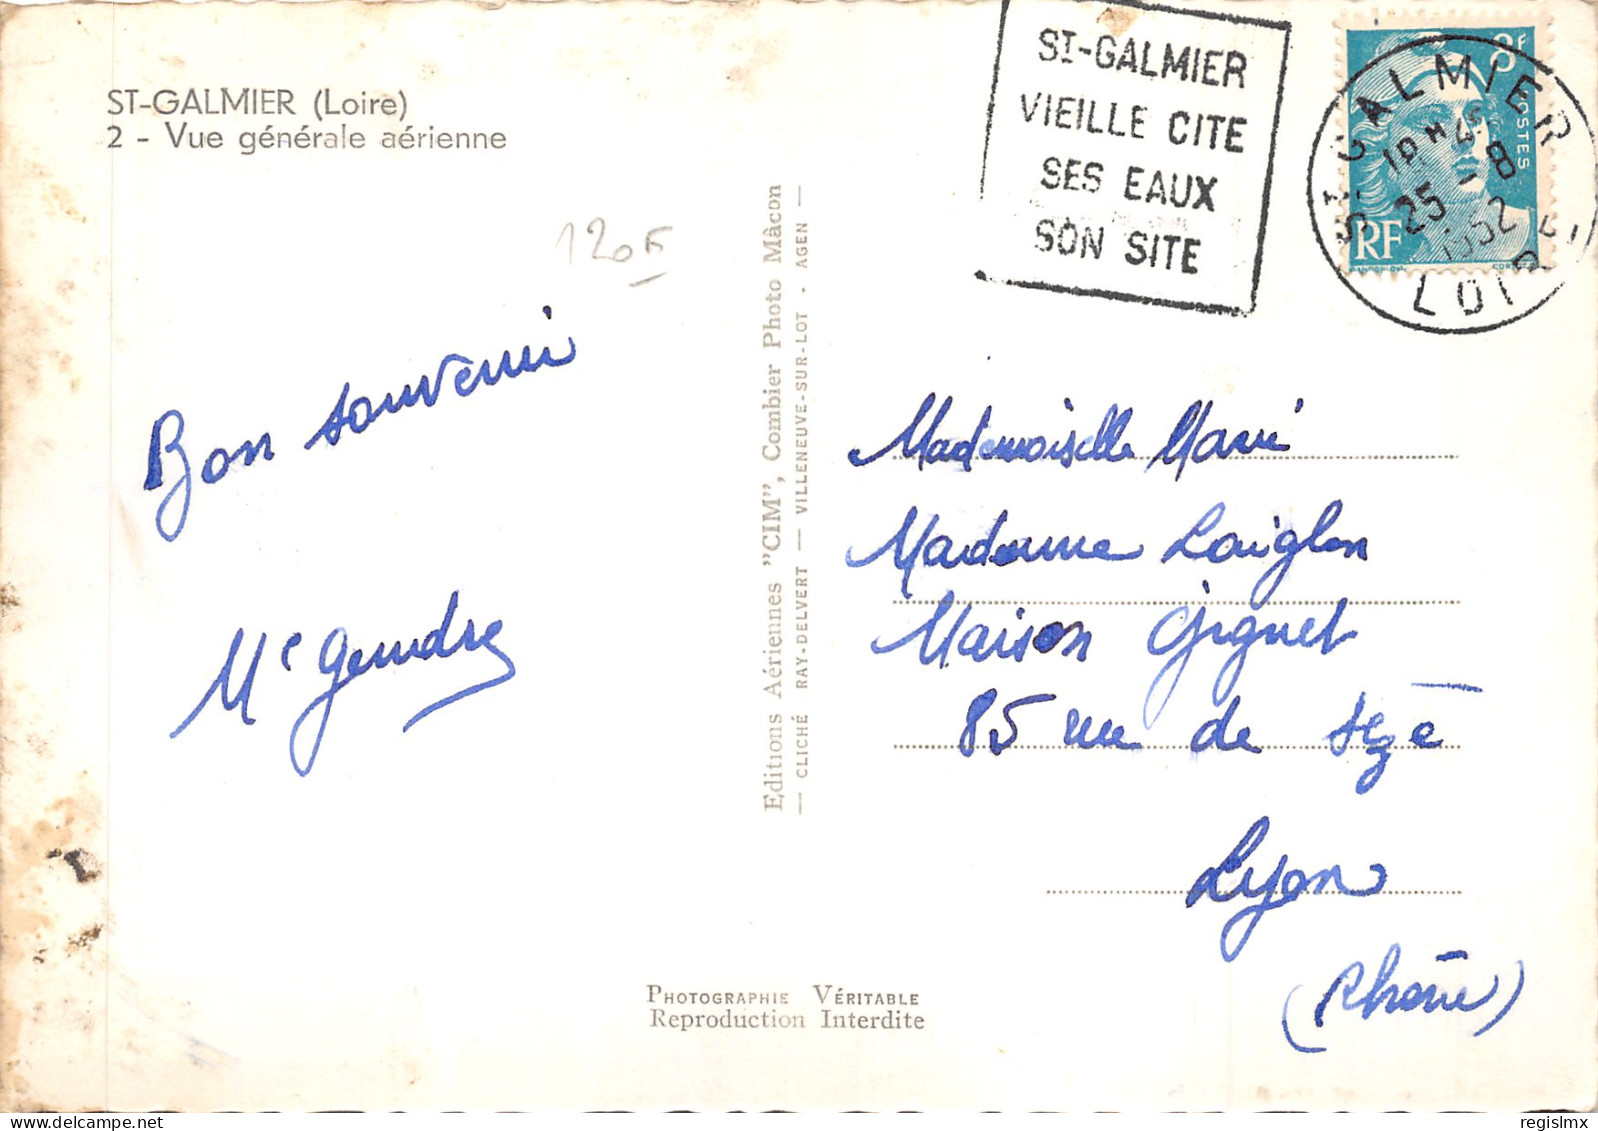 ST-GALMIER (Loire)
2 - Vue générale aérienne
120F
Bon souvenir
Editions Aériennes "CIM", Combier Photo Mâcon
— CLICHÉ RAY-DELVERT — VILLENEUVE-SUR-LOT - AGEN —
PHOTOGRAPHIE VÉRITABLE
Reproduction Interdite
ST-GALMIER
VIEILLE CITE
SES EAUX
SON SITE
8F
POSTES
RF
ST GALMIER
25 -8
1952
LOIRE
Mademoiselle Marie
Madame Laiglon
Maison Gignet
85 rue de Sèze
Lyon
(Rhône)
regislmx